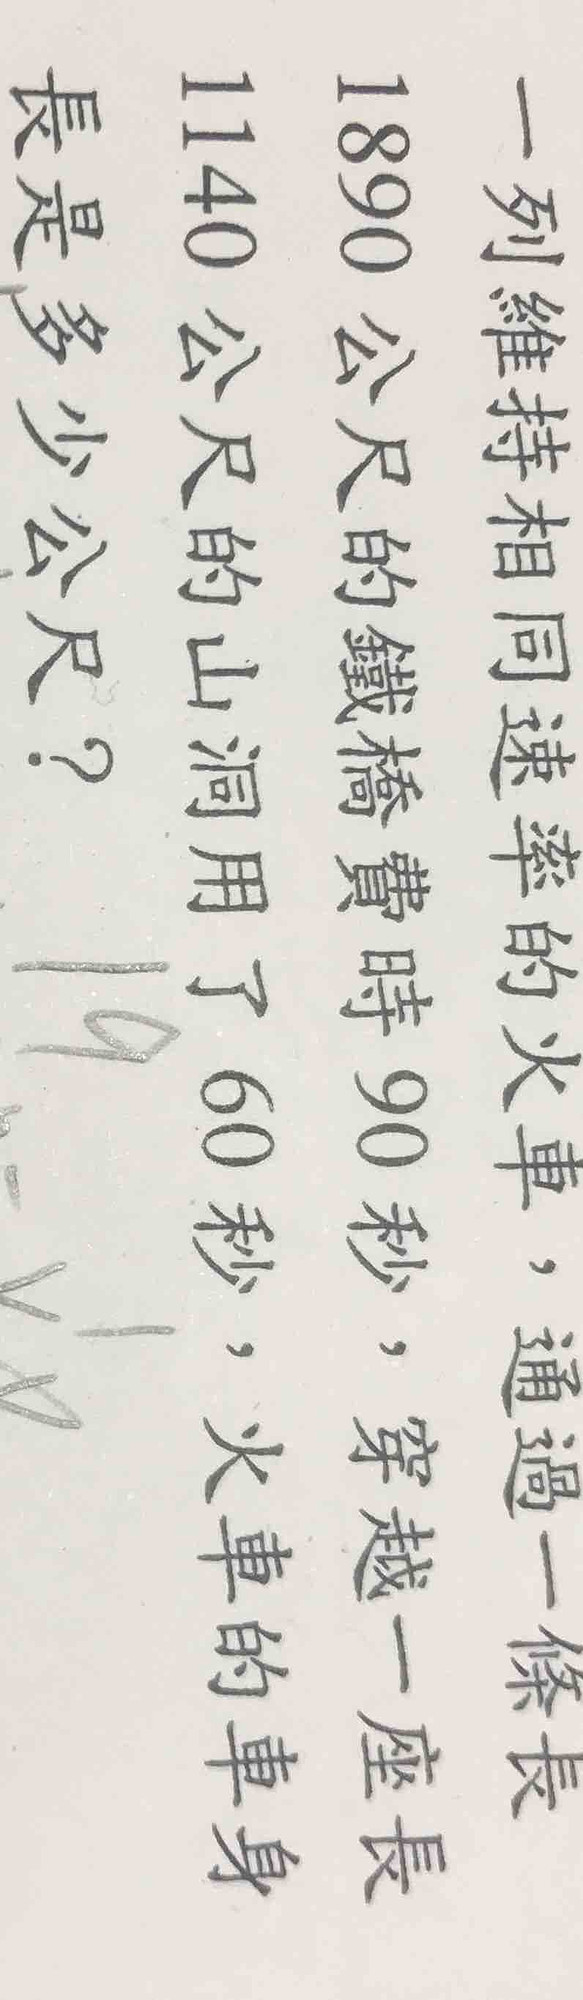 一列維持相同速率的火車，通過一條長
1890 公尺的鐵橋費時 90 秒，穿越一座長
1140 公尺的山洞用了 60 秒，火車的車身
長是多少公尺？
19